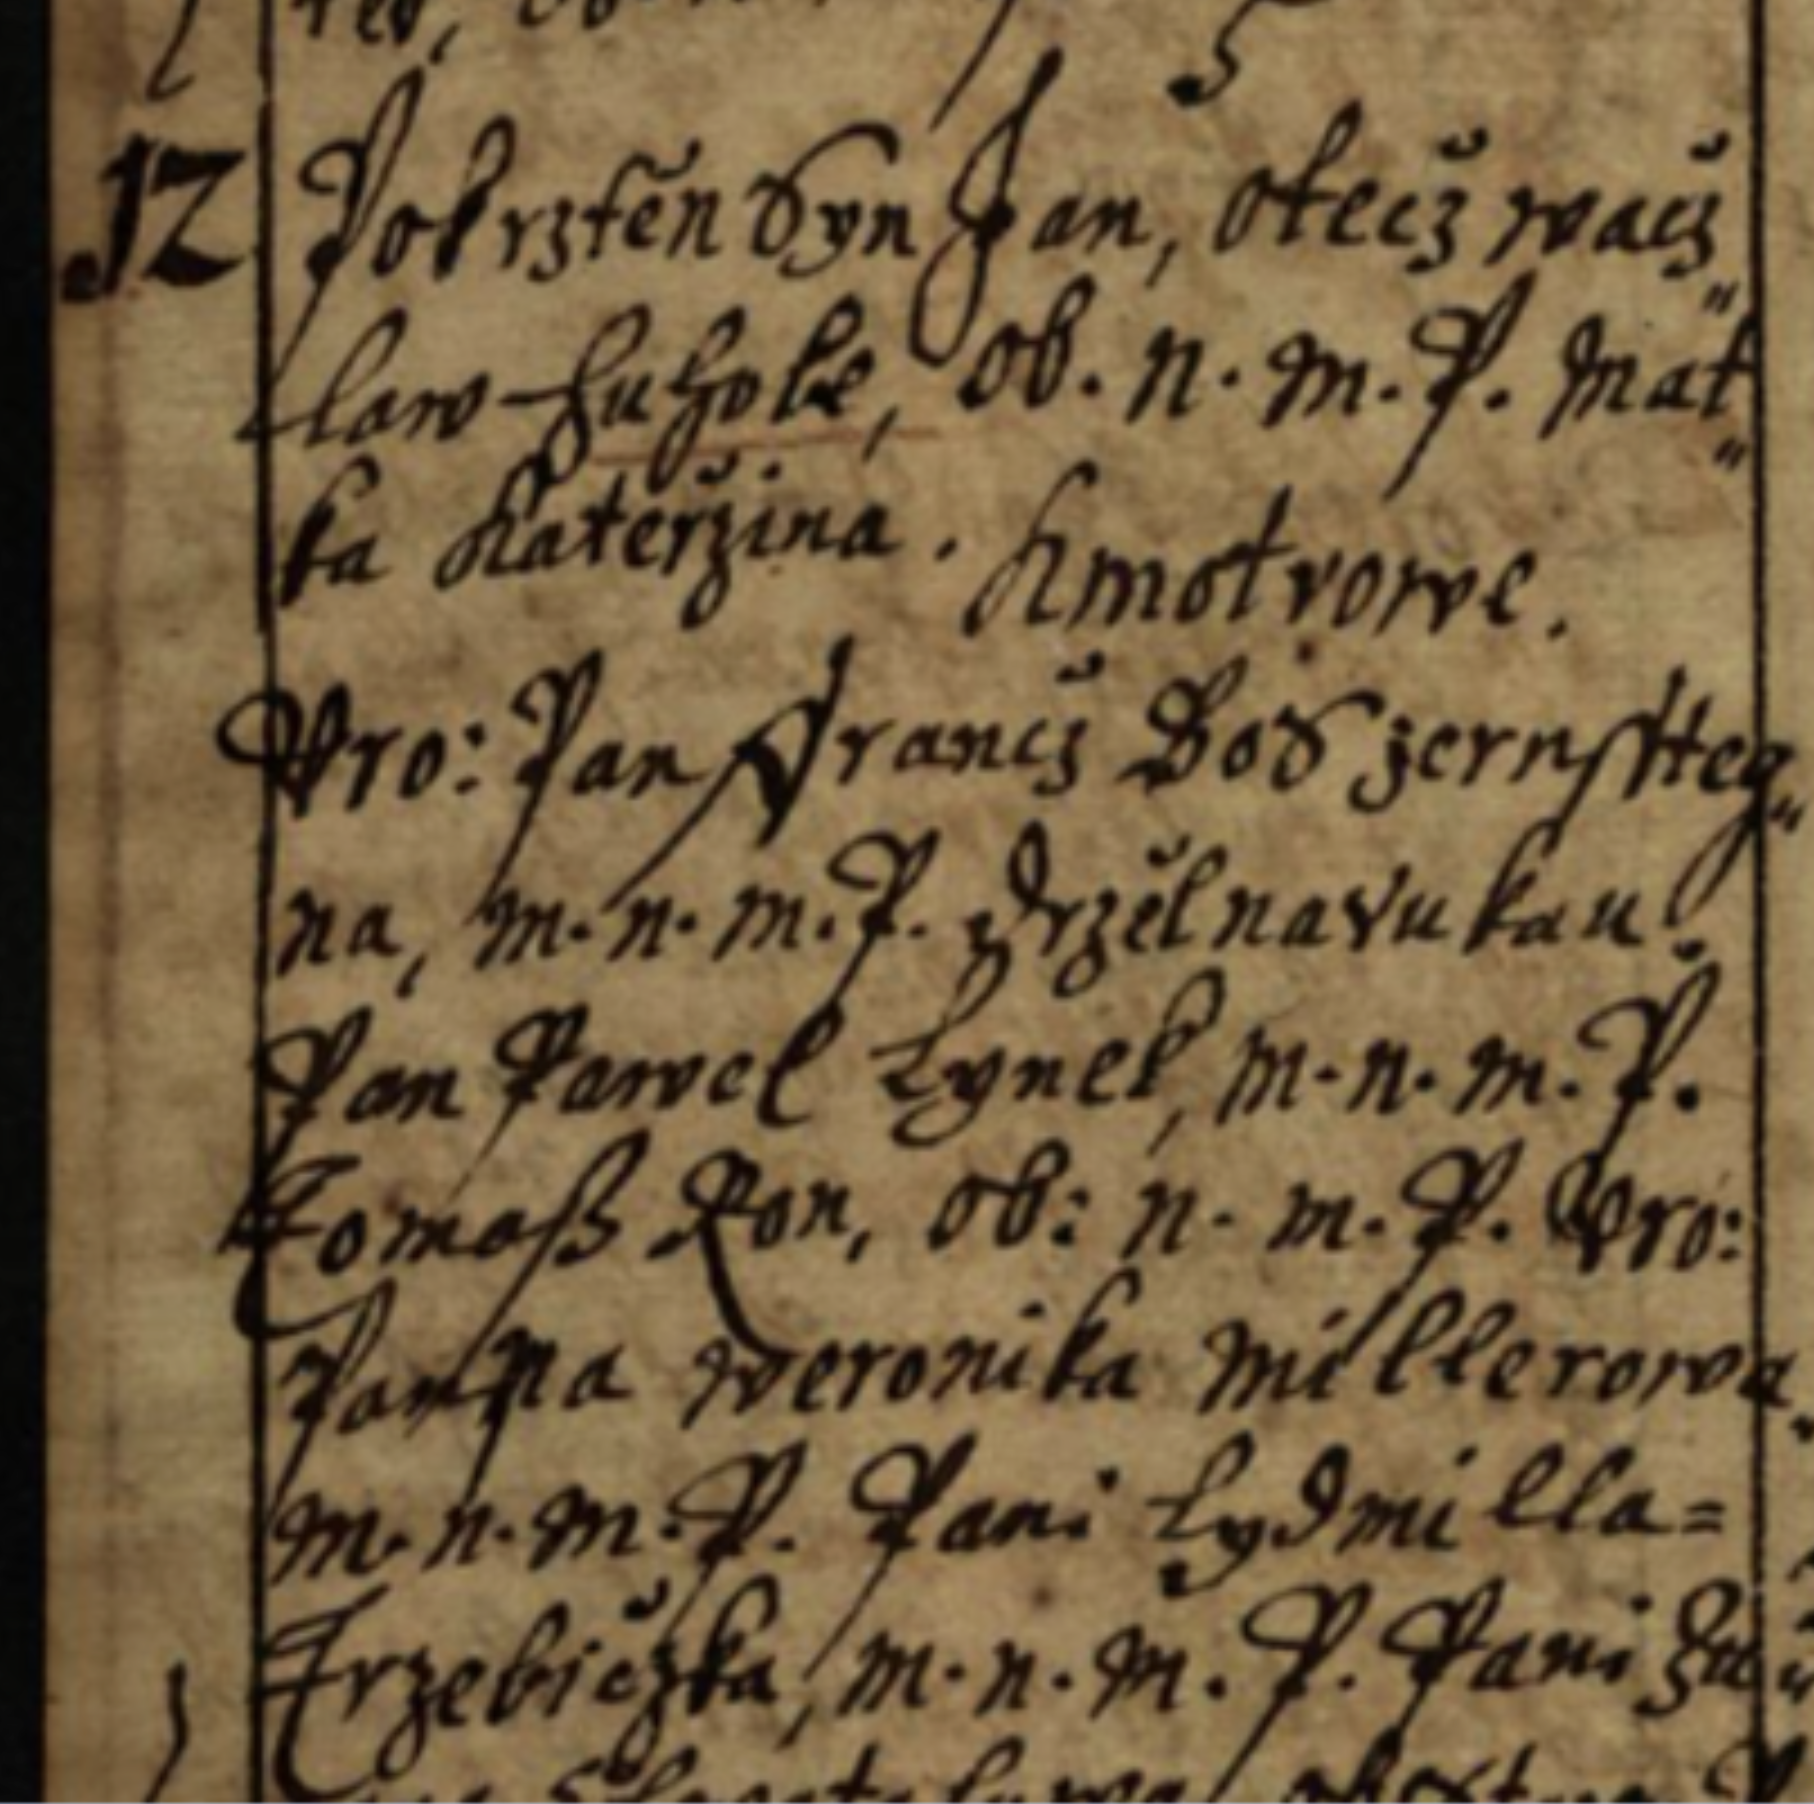 12 Pokrztěn Syn Jan, Otecž wacž„
law Huhole, ob. n. m. P. Mat„
ka Kateržina. Kmotrowe.
Uro: Pan Francž Bod zernsteg„
na, m. n. m. P. držěl na rukau.
Pan Pawel Lynek, m. n. m. P.
Tomaß Ron, ob: n. m. P. Uro:
Panna weronika Millerowa,
m. n. m. P. Pani Lydmilla=
Trzebicžka, m. n. m. P. Pani